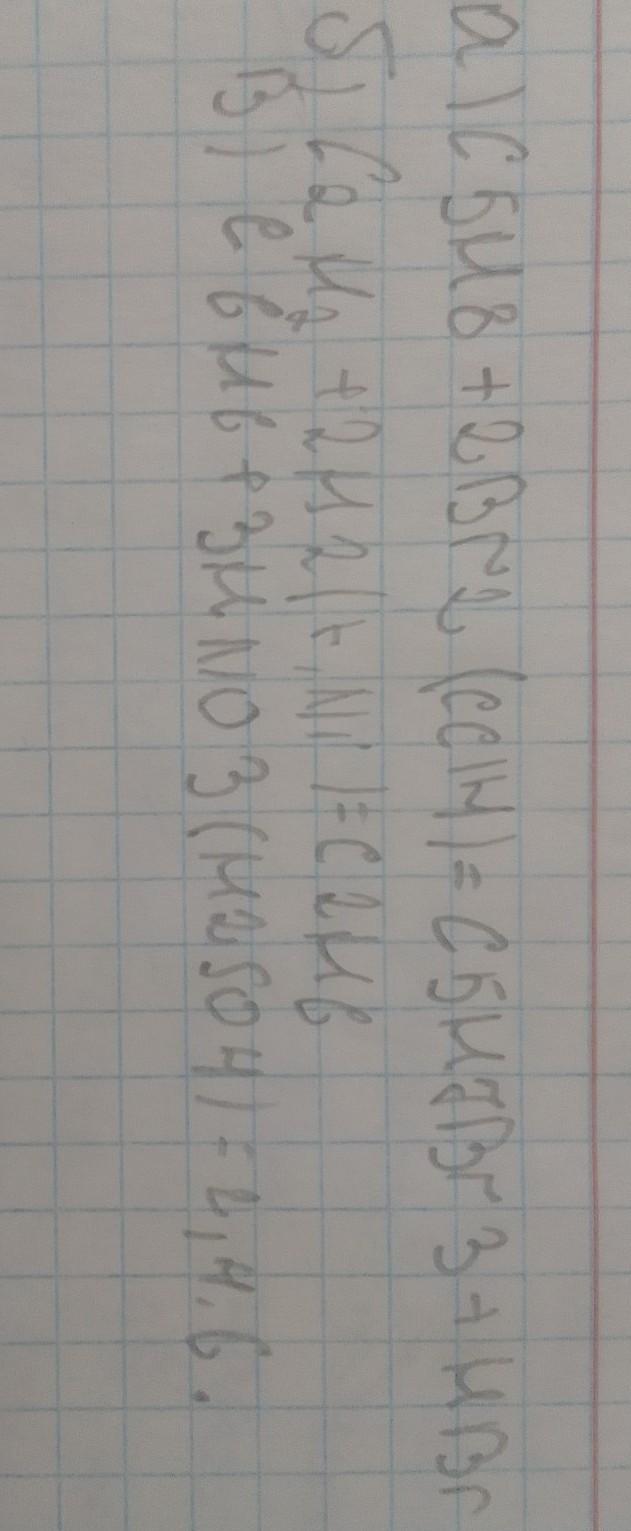 а) C5H8+2Br2(CCl4)=C5H7Br3+HBr
б) C2H2+2H2(t,Ni)=C2H6
в) C6H6+3HNO3(H2SO4)=2,4.6.